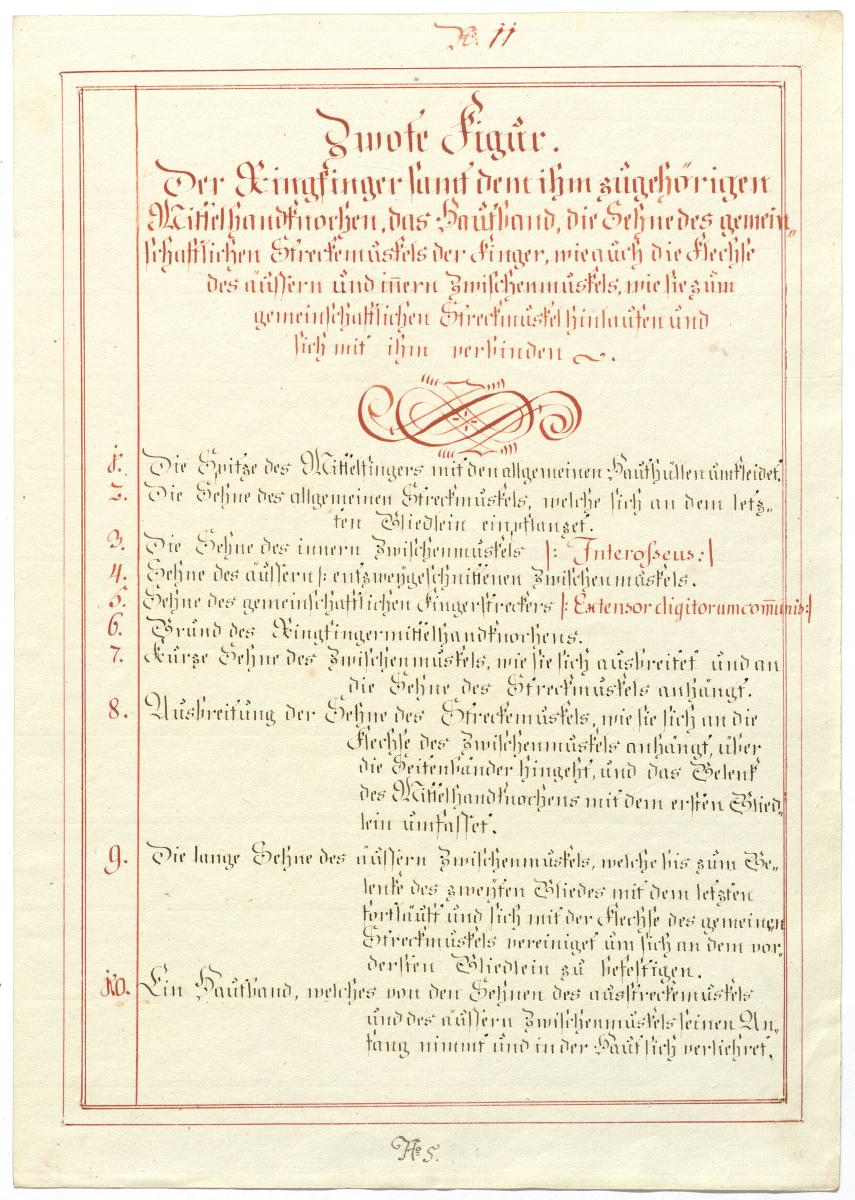 No. 11
Zwote Figur.
Der Ringfinger samt dem ihm zugehörigen
Mittelhandknochen, das Hautband, die Sehne des gemein„
schaftlichen Streckemuskels der Finger, wie auch die Flechse
des äussern und iñern Zwischenmuskels, wie sie zum
gemeinschaftlichen Streckmuskel hinlaufen und
sich mit ihm verbinden ~.
1. Die Spitze des Mittelfingers mit den allgemeinen Hauthüllen umkleidet.
2. Die Sehne des allgemeinen Streckmuskels, welche sich an dem letz„
ten Gliedlein einpflanzet.
3. Die Sehne des innern Zwischenmuskels |: Interosseus :|
4. Sehne des äussern |: entzweygeschnittenen Zwischenmuskels.
5. Sehne des gemeinschaftlichen Fingerstreckers |: Extensor digitorum com̄unis :|
6. Grund des Ringfingermittelhandknochens.
7. Kurze Sehne des Zwischenmuskels, wie sie sich ausbreitet und an
die Sehne des Streckmuskels anhängt.
8. Ausbreitung der Sehne des Streckemuskels, wie sie sich an die
Flechse des Zwischenmuskels anhängt, über
die Seitenbänder hingeht, und das Gelenk
des Mittelhandknochens mit dem ersten Glied„
lein umfasset.
9. Die lange Sehne des äussern Zwischenmuskels, welche bis zum Ge„
lenke des zweyten Gliedes mit dem letzten
fortläuft und sich mit der Flechse des gemeinen
Streckmuskels vereiniget um sich an dem vor„
dersten Gliedlein zu befestigen.
10. Ein Hautband, welches von den Sehnen des ausstreckemuskels
und des äussern Zwischenmuskels seinen An„
fang nimmt und in der Haut sich verliehret.
No 5.